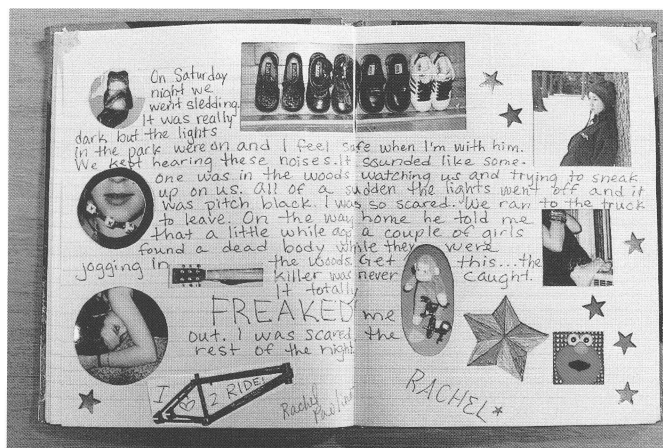 On Saturday
night we
went sledding.
It was really
dark but the lights
in the park were on and I feel safe when I'm with him.
We kept hearing these noises. It sounded like some-
one was in the woods watching us and trying to sneak
up on us. All of a sudden the lights went off and it
was pitch black. I was so scared. We ran to the truck
to leave. On the way home he told me
that a little while ago a couple of girls
found a dead body while they were
jogging in the woods. Get this...the
killer was never caught.
It totally
FREAKED me
out. I was scared the
rest of the night.
I 2 RIDE!
Rachel
RACHEL